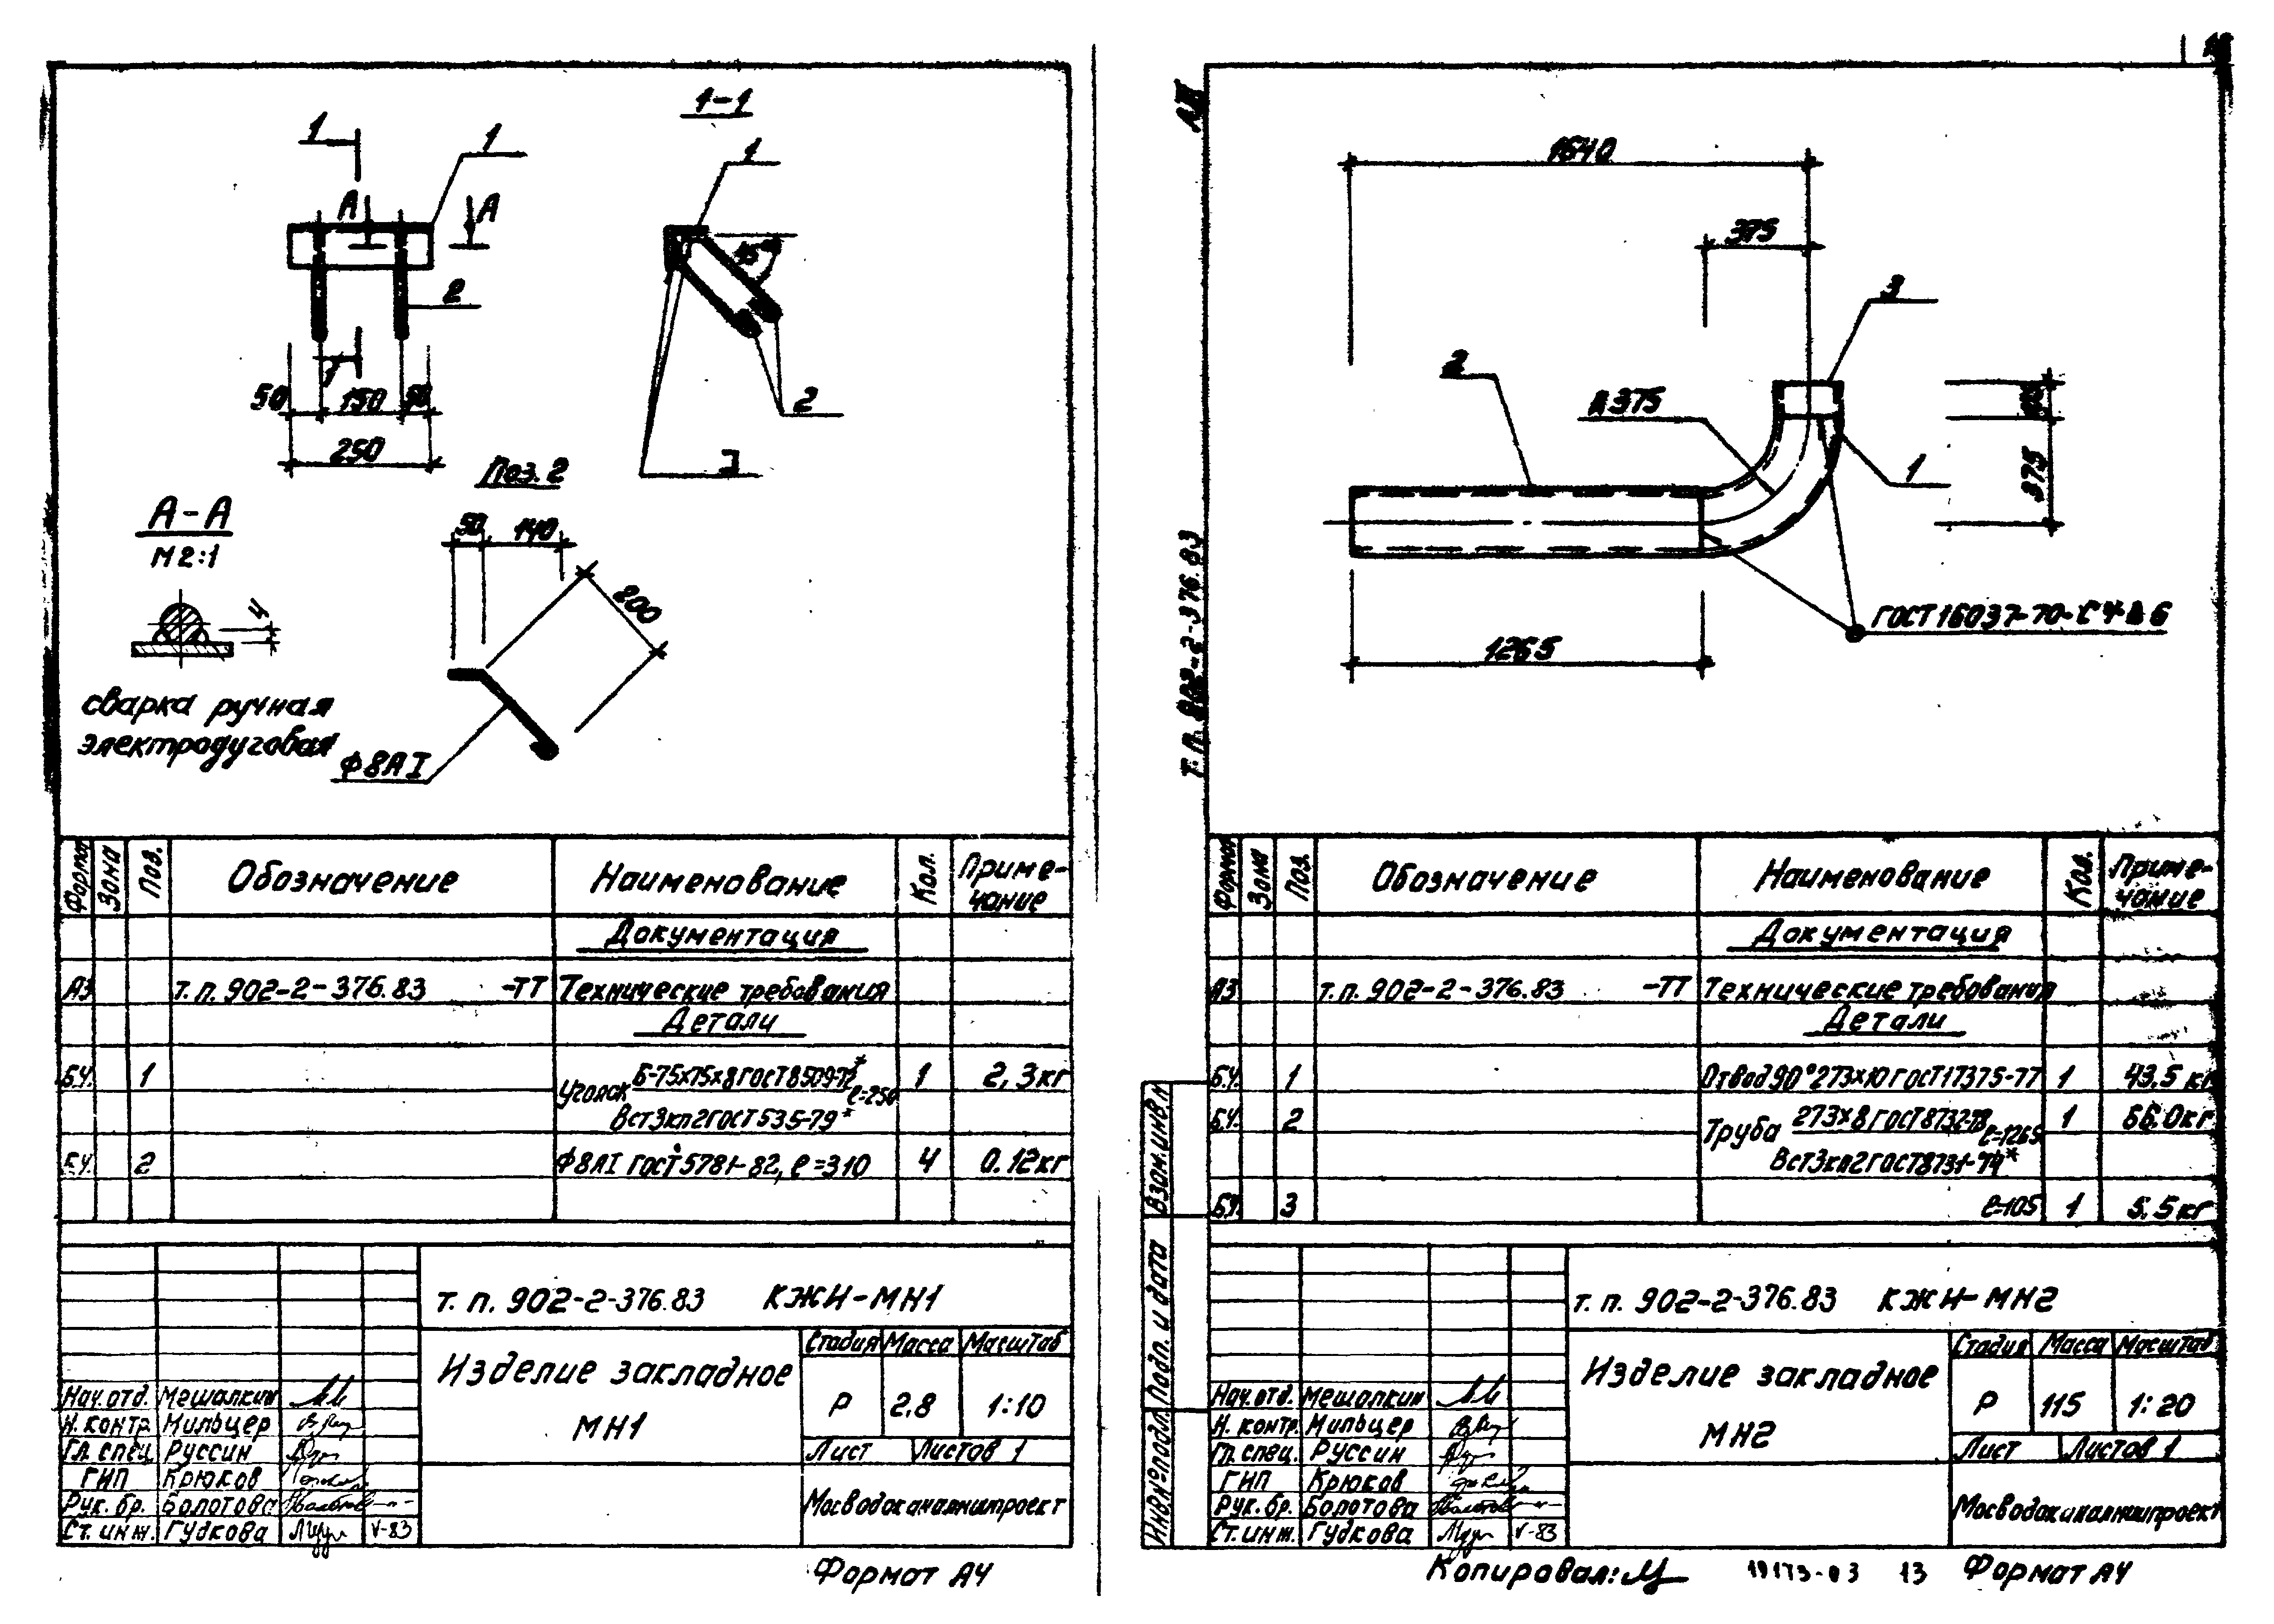 1-1
1
1
1
А
А
45°
2
1
50
150
50
2
250
3
Поз. 2
А-А
М 2:1
50
140
200
4
сварка ручная
электродуговая
Ф8АI
Формат
Зона
Поз.
Обозначение
Наименование
Кол.
Приме-
чание
Документация
А3 т.п. 902-2-376.83 -ТТ Технические требования
Детали
Б.Ч. 1 Уголок Б-75х75х8 ГОСТ 8509-72* ℓ=250 1 2,3кг
ВСт3кп2 ГОСТ 535-79*
Б.Ч. 2 Ф8АI ГОСТ 5781-82, ℓ=310 4 0.12кг
т. п. 902-2-376.83 КЖИ-МН1
Изделие закладное
МН1
Стадия Масса Масштаб
Р 2.8 1:10
Лист Листов 1
Нач. отд. Мешалкин
Н. контр. Мильцер
Гл. спец. Руссин
ГИП Крюков
Рук. бр. Болотова
Ст. инж. Гудкова V-83
Мосводоканалниипроект
Формат А4
АII
1640
375
3
2
R375
1
375
ГОСТ 16037-70-С
1265
т.п. 902-2-376.83
Формат
Зона
Поз.
Обозначение
Наименование
Кол.
Приме-
чание
Документация
А3 т.п. 902-2-376.83 -ТТ Технические требования
Детали
Б.Ч. 1 Отвод 90° 273х10 ГОСТ 17375-77 1 43.5 кг
Б.Ч. 2 Труба 273х8 ГОСТ 8732-78 ℓ=1265 1 66.0кг
ВСт3кп2 ГОСТ 8731-74*
Б.Ч. 3 ℓ=105 1 5.5кг
Взам. инв. н
Подп. и дата
Инв. № подл.
т. п. 902-2-376.83 КЖИ-МН2
Изделие закладное
МН2
Стадия Масса Масштаб
Р 115 1:20
Лист Листов 1
Нач. отд. Мешалкин
Н. контр. Мильцер
Гл. спец. Руссин
ГИП Крюков
Рук. бр. Болотова
Ст. инж. Гудкова V-83
Мосводоканалниипроект
Копировал: 19173-03 13 Формат А4